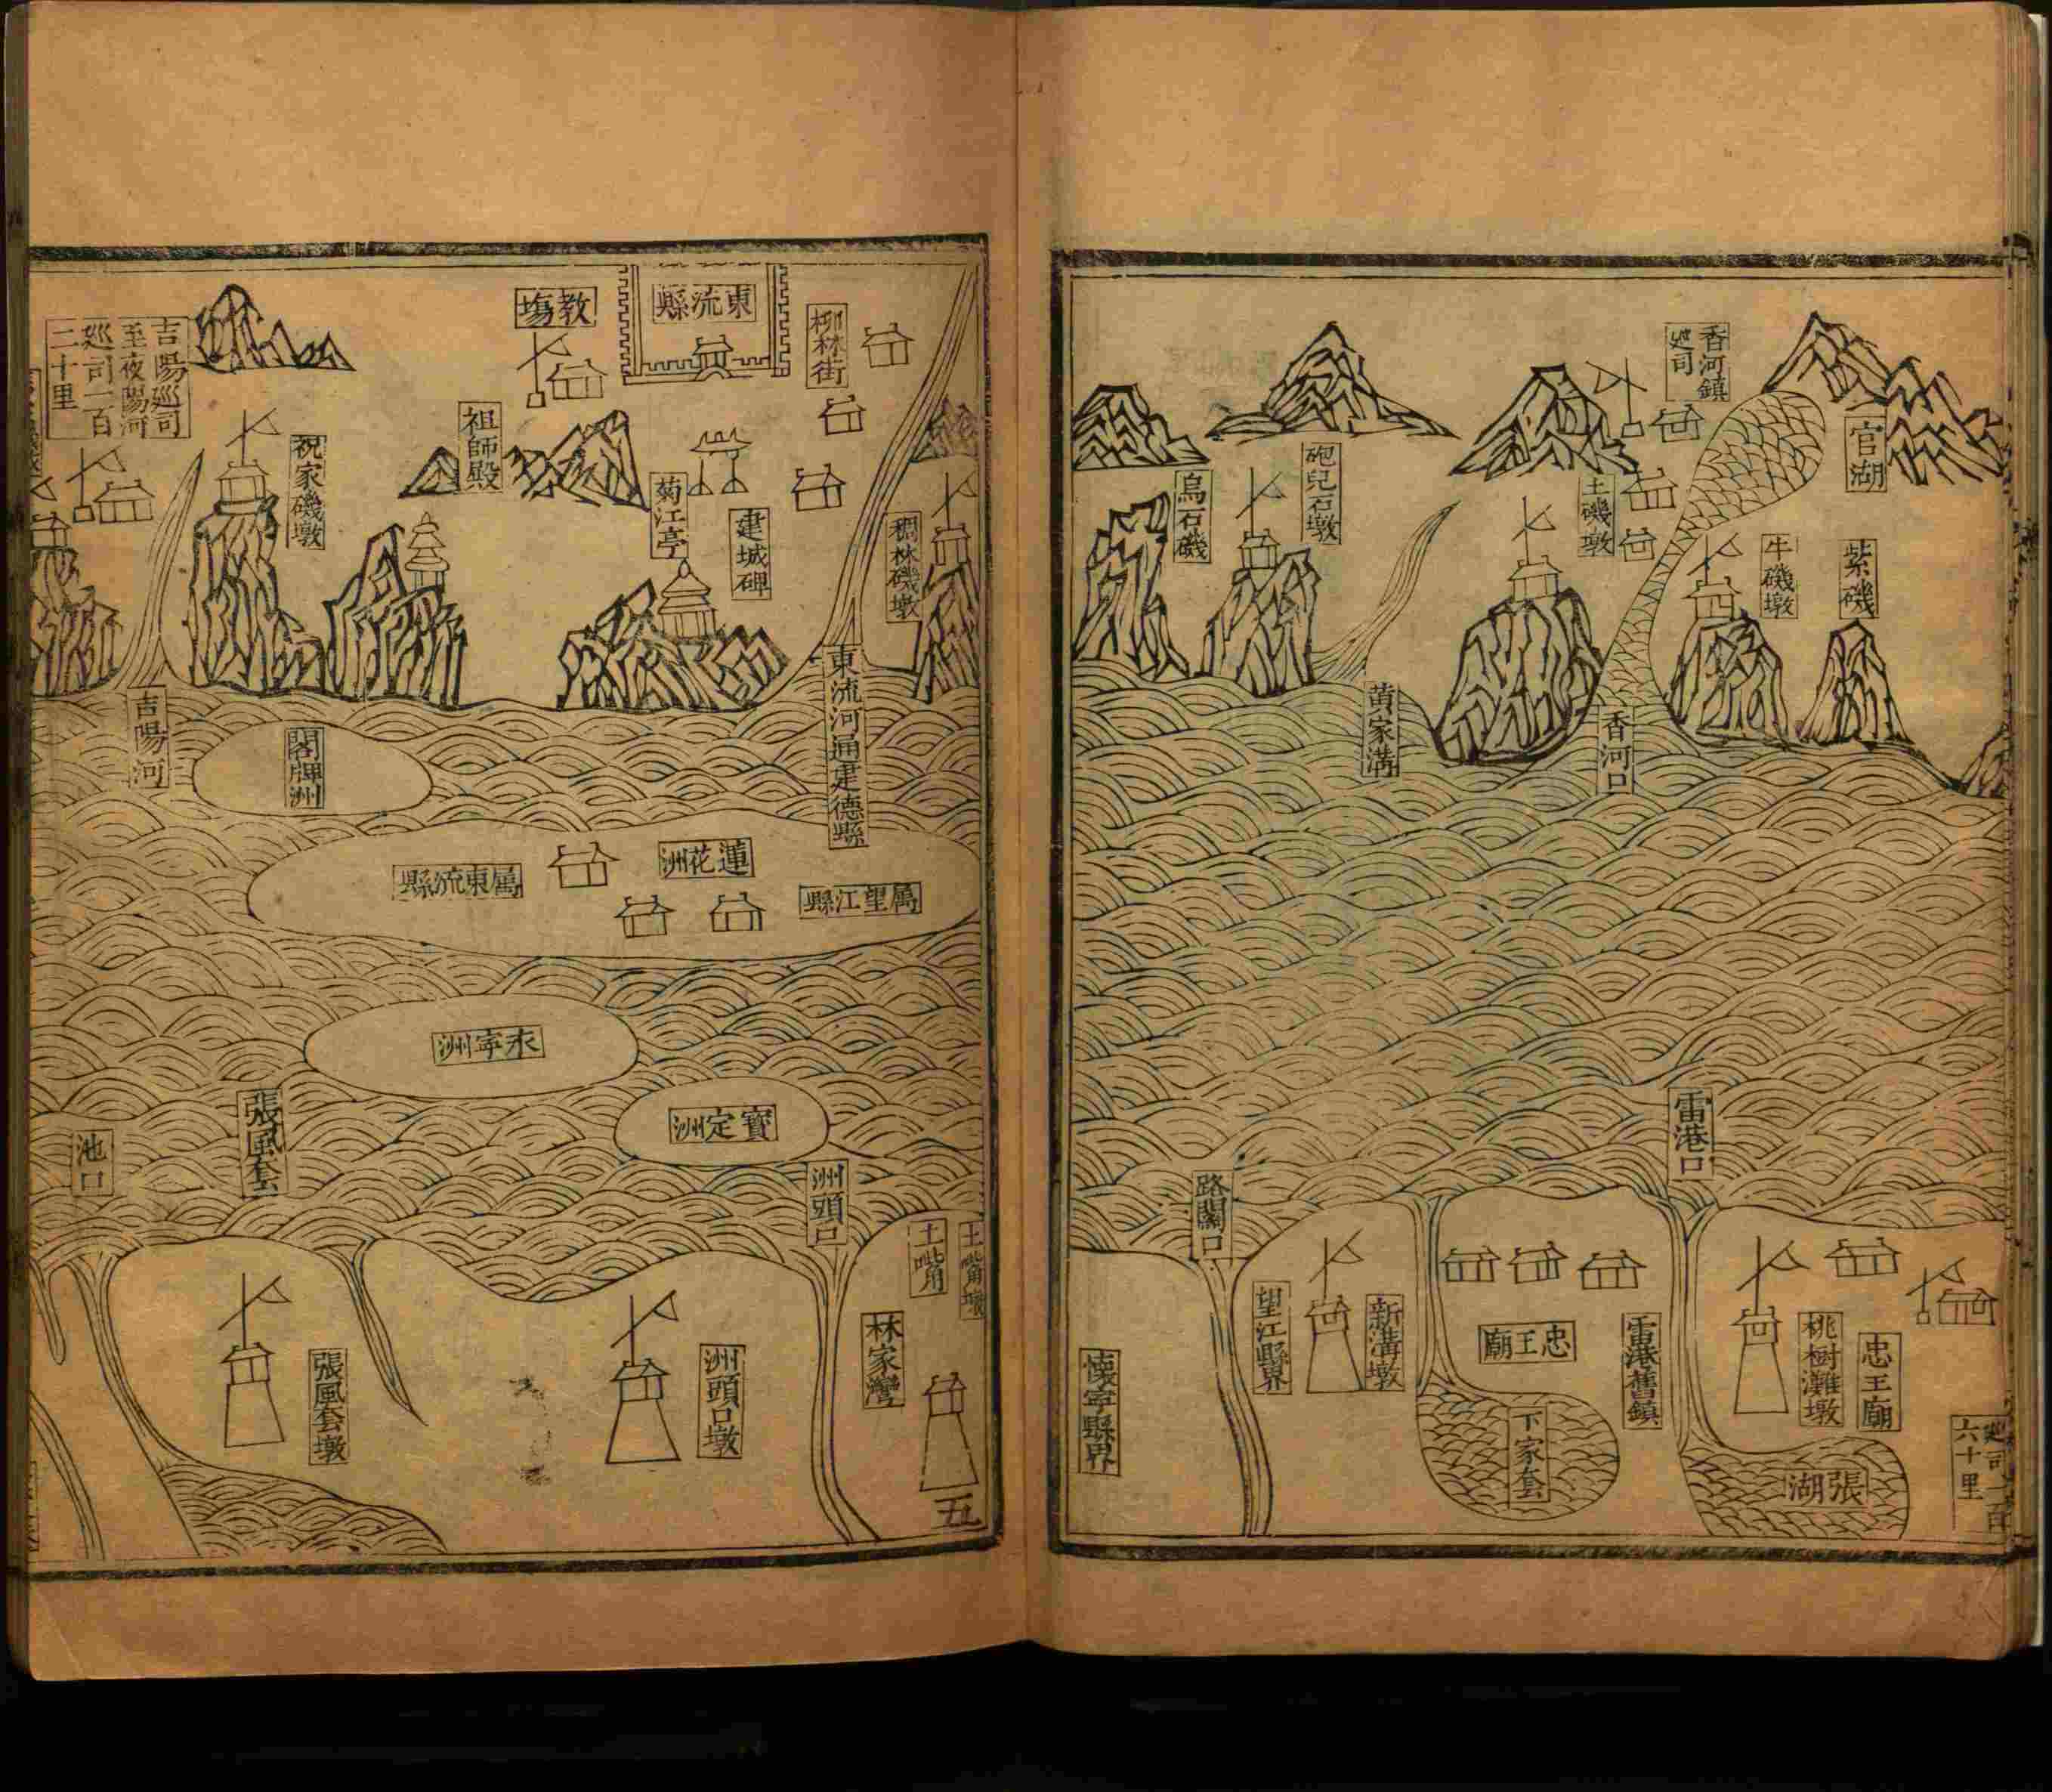 香河鎮
巡司
官湖
紫磯
牛磯墩
土磯墩
香河口
砲兒石墩
黃家溝
烏石磯
雷港口
路關口
巡司一百
六十里
忠王廟
桃樹灘墩
張湖
雷港舊鎮
忠王廟
下家套
新溝墩
望江縣界
懷寧縣界
東流縣
柳林街
教場
稠林磯墩
建城碑
菊江亭
祖師殿
祝家磯墩
吉陽巡司
至夜陽河
巡司一百
二十里
東流河通建德縣
吉陽河
閣牌洲
蓮花洲
屬望江縣
屬東流縣
永寧洲
寶定洲
洲頭口
張風套
池口
土嘴墩
土嘴
林家灣
洲頭口墩
張風套墩
五